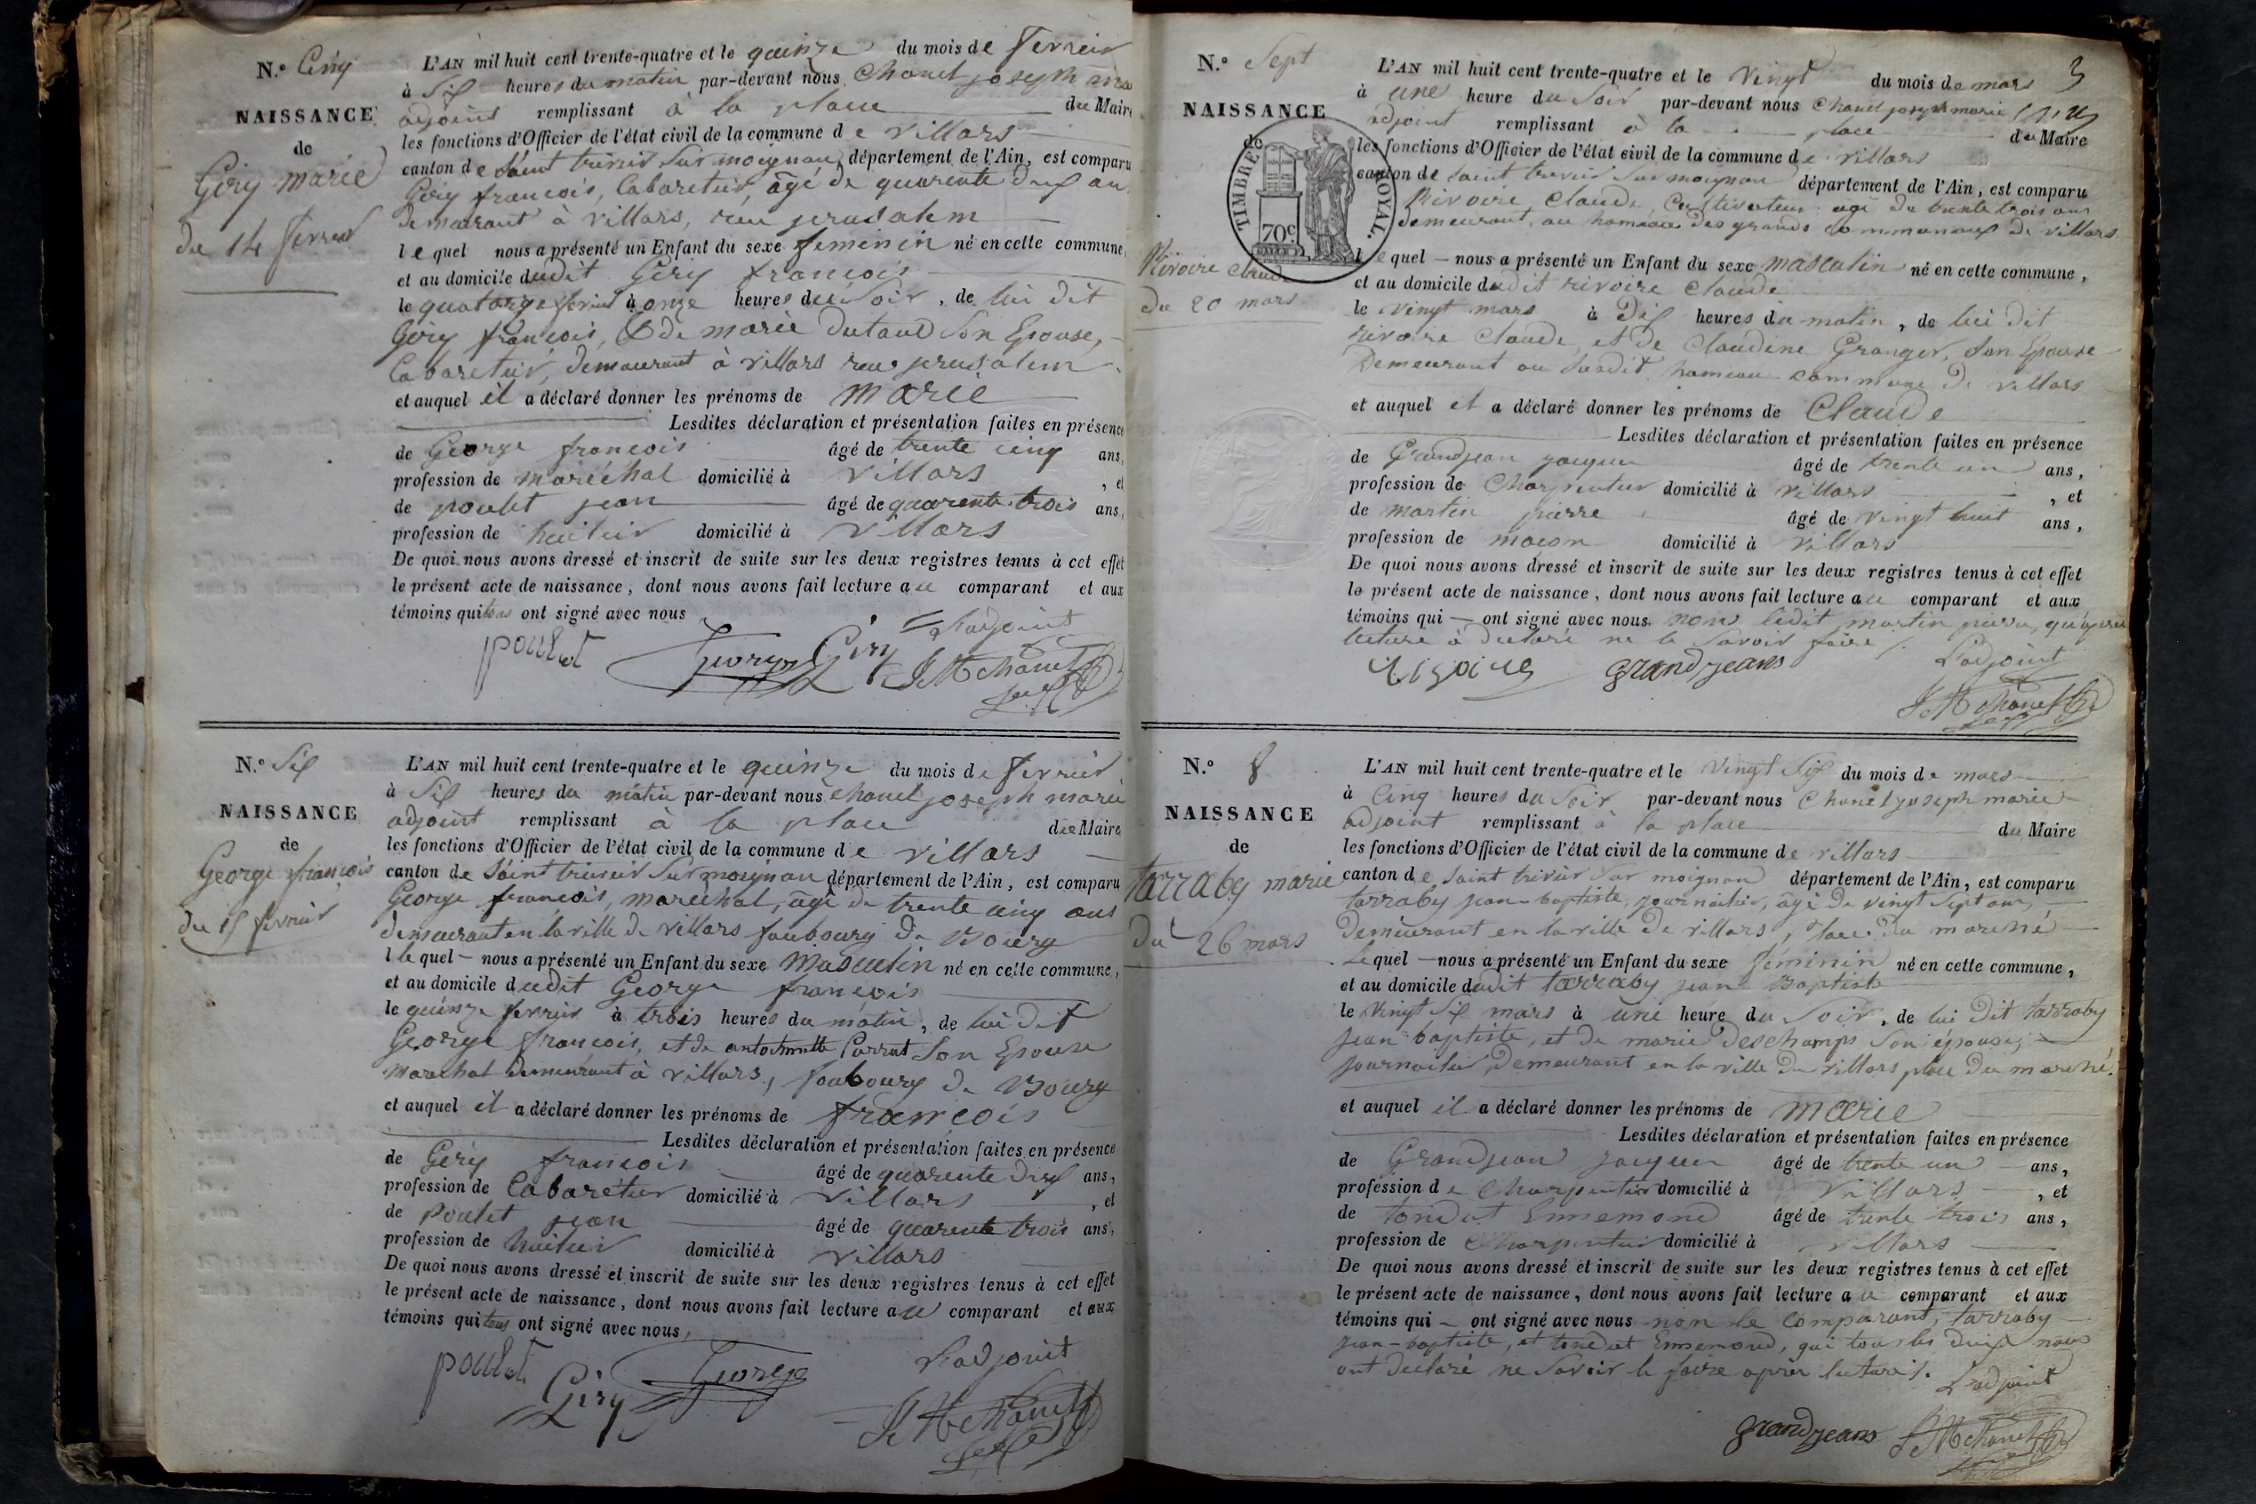 N.o Cinq
NAISSANCE
de
Géry marie
du 14 fevrier
L'AN mil huit cent trente-quatre et le quinze du mois de fevrier
à Six heures du matin par-devant nous Chanel joseph marie
adjoint remplissant à la place du Maire
les fonctions d'Officier de l'état civil de la commune de villars
canton de Saint trivier Sur moignan, département de l'Ain, est comparu
Géry francois, Cabaretier âgé de quarente deux ans
demeurant à villars, rue jerusalem
lequel nous a présenté un Enfant du sexe feminin né en cette commune,
et au domicile dudit Géry francois
le quatorze fevrier à onze heures du Soir, de lui dit
Géry francois, & de marie dutaud Son Epouse,
Cabaretier, demeurant à villars rue jerusalem
et auquel il a déclaré donner les prénoms de marie
Lesdites déclaration et présentation faites en présence
de George francois âgé de trente cinq ans,
profession de maréchal domicilié à villars, et
de poulet jean âgé de quarente trois ans,
profession de huilier domicilié à villars
De quoi nous avons dressé et inscrit de suite sur les deux registres tenus à cet effet
le présent acte de naissance, dont nous avons fait lecture au comparant et aux
témoins qui tous ont signé avec nous
L'adjoint
poulet George Géry J M Chanel
N.o Six
NAISSANCE
de
George francois
du 15 fevrier
L'AN mil huit cent trente-quatre et le quinze du mois de fevrier
à Six heures du matin par-devant nous Chanel joseph marie
adjoint remplissant à la place du Maire
les fonctions d'Officier de l'état civil de la commune de villars
canton de Saint trivier Sur moignan département de l'Ain, est comparu
George francois, maréchal, âgé de trente cinq ans
demeurant en la ville de villars faubourg de Bourg
lequel nous a présenté un Enfant du sexe Masculin né en cette commune,
et au domicile dudit George francois
le quinze fevrier à trois heures du matin, de lui dit
George francois, et de antoinette Parrat Son Epouse
Marechal demeurant à villars, faubourg de Bourg
et auquel il a déclaré donner les prénoms de francois
Lesdites déclaration et présentation faites en présence
de Géry francois âgé de quarente deux ans,
profession de Cabarétier domicilié à villars, et
de poulet jean âgé de quarente trois ans,
profession de huilier domicilié à villars
De quoi nous avons dressé et inscrit de suite sur les deux registres tenus à cet effet
le présent acte de naissance, dont nous avons fait lecture au comparant et aux
témoins qui tous ont signé avec nous,
L'adjoint
poulet Géry George J M Chanel
3
N.o Sept
NAISSANCE
de
TIMBRE ROYAL.
70c
Rivoire Claude
du 20 mars
L'AN mil huit cent trente-quatre et le vingt du mois de mars
à une heure du Soir par-devant nous Chanel joseph marie
adjoint remplissant à la place du Maire
les fonctions d'Officier de l'état civil de la commune de villars
canton de Saint trivier Sur moignan département de l'Ain, est comparu
Rivoire Claude, Cultivateur agé de trente trois ans
demeurant, au hameau des grands communaux de villars
lequel nous a présenté un Enfant du sexe masculin né en cette commune,
et au domicile dudit rivoire Claude
le vingt mars à Dix heures du matin, de lui dit
rivoire Claude, et de Claudine Granger, Son Epouse
Demeurant au Susdit hameau commune de villars
et auquel il a déclaré donner les prénoms de Claude
Lesdites déclaration et présentation faites en présence
de Grandjean jacques âgé de trente un ans,
profession de Charpentier domicilié à villars, et
de martin pierre âgé de vingt huit ans,
profession de macon domicilié à villars
De quoi nous avons dressé et inscrit de suite sur les deux registres tenus à cet effet
le présent acte de naissance, dont nous avons fait lecture au comparant et aux
témoins qui ont signé avec nous non ledit martin pierre, qu'apres
lecture à declaré ne le Savoir faire /.
L'adjoint
Rivoire grandjeans J M Chanel
N.o 8
NAISSANCE
de
tarraby marie
Du 26 mars
L'AN mil huit cent trente-quatre et le vingt Six du mois de mars
à Cinq heures du Soir par-devant nous Chanel joseph marie
adjoint remplissant à la place du Maire
les fonctions d'Officier de l'état civil de la commune de villars
canton de Saint trivier Sur moignan département de l'Ain, est comparu
tarraby jean-baptiste, journalier, âgé de vingt Sept ans,
demeurant en la ville de villars, place du marché
Lequel nous a présenté un Enfant du sexe feminin né en cette commune,
et au domicile dudit tarraby jean Baptiste
le vingt Six mars à une heure du Soir, de lui dit tarraby
jean baptiste, et de marie Deschamps Son épouse,
journalier, Demeurant en la ville de villars place du marché.
et auquel il a déclaré donner les prénoms de marie
Lesdites déclaration et présentation faites en présence
de Grandjean jacques âgé de trente un ans,
profession de Charpentier domicilié à villars, et
de tondut Ennemond âgé de trente trois ans,
profession de Charpentier domicilié à villars
De quoi nous avons dressé et inscrit de suite sur les deux registres tenus à cet effet
le présent acte de naissance, dont nous avons fait lecture au comparant et aux
témoins qui ont signé avec nous non le Comparant, tarraby
jean-baptiste, et tondut Ennemond, qui tous les deux nous
ont declaré ne Savoir le faire après lecture /.
L'adjoint
grandjeans J M Chanel